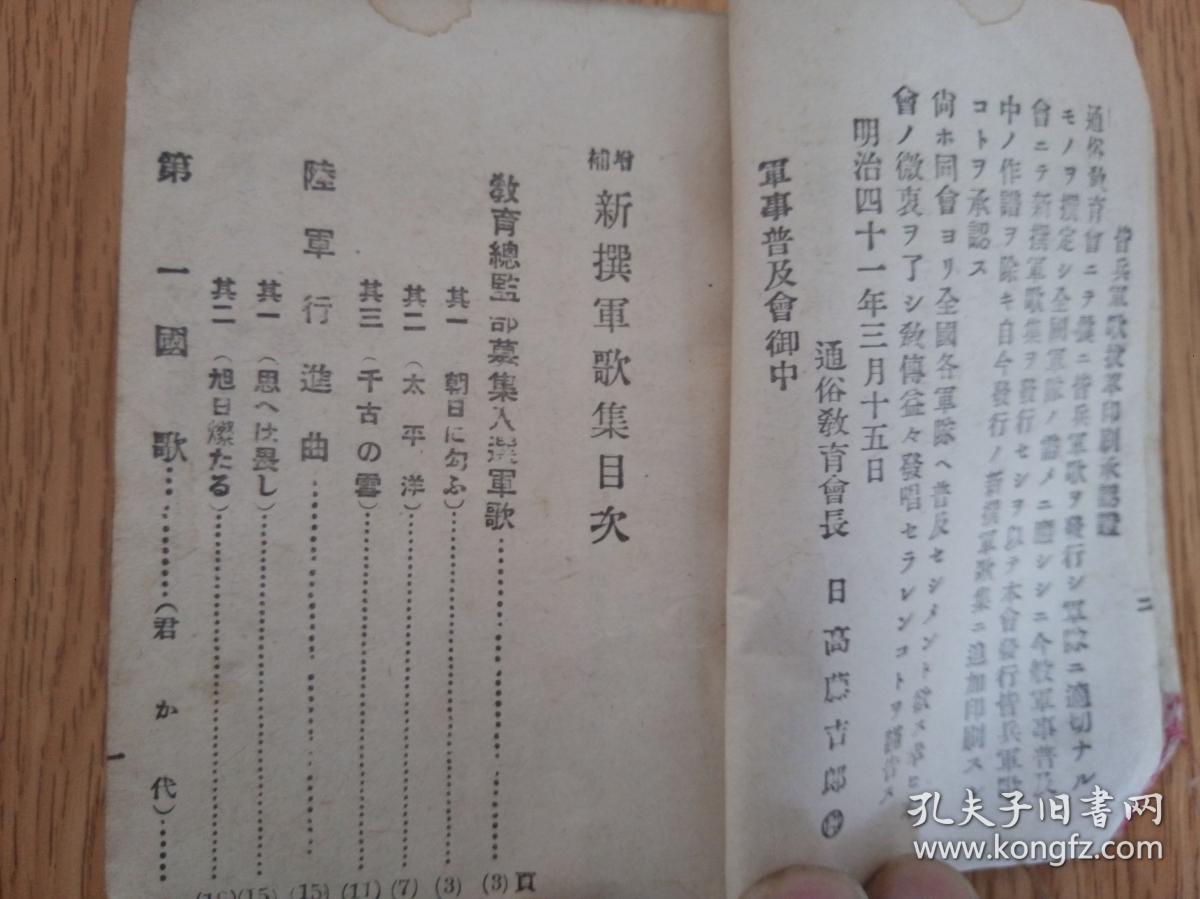 皆兵軍歌投軍印刷承認證
通俗敎育會ニテ曩ニ皆兵軍歌ヲ發行シ軍隊ニ適切ナル
モノヲ撰定シ全國軍隊ノ需メニ應シシニ今般軍事普及
會ニテ新撰軍歌集ヲ發行セシヲ以テ本會發行皆兵軍歌
中ノ作譜ヲ除キ自今發行ノ新撰軍歌集ニ追加印刷ス
コトヲ承認ス
尙ホ同會ヨリ全國各軍隊ヘ普及セシメント欲ス
會ノ微衷ヲ了シ敎傳益々發唱セラレンコトヲ謹告ス
明治四十一年三月十五日
通俗敎育會長 日高藤吉郎
軍事普及會御中
二
增補 新撰軍歌集目次
敎育總監部募集入選軍歌……(3)頁
其一(朝日に匂ふ)……(3)
其二(太平洋)……(7)
其三(千古の雪)……(11)
陸軍行進曲……(15)
其一(思へは畏し)……(15)
其二(旭日燦たる)……
第一國歌……(君か代)……
一
孔夫子旧书网
www.kongfz.com